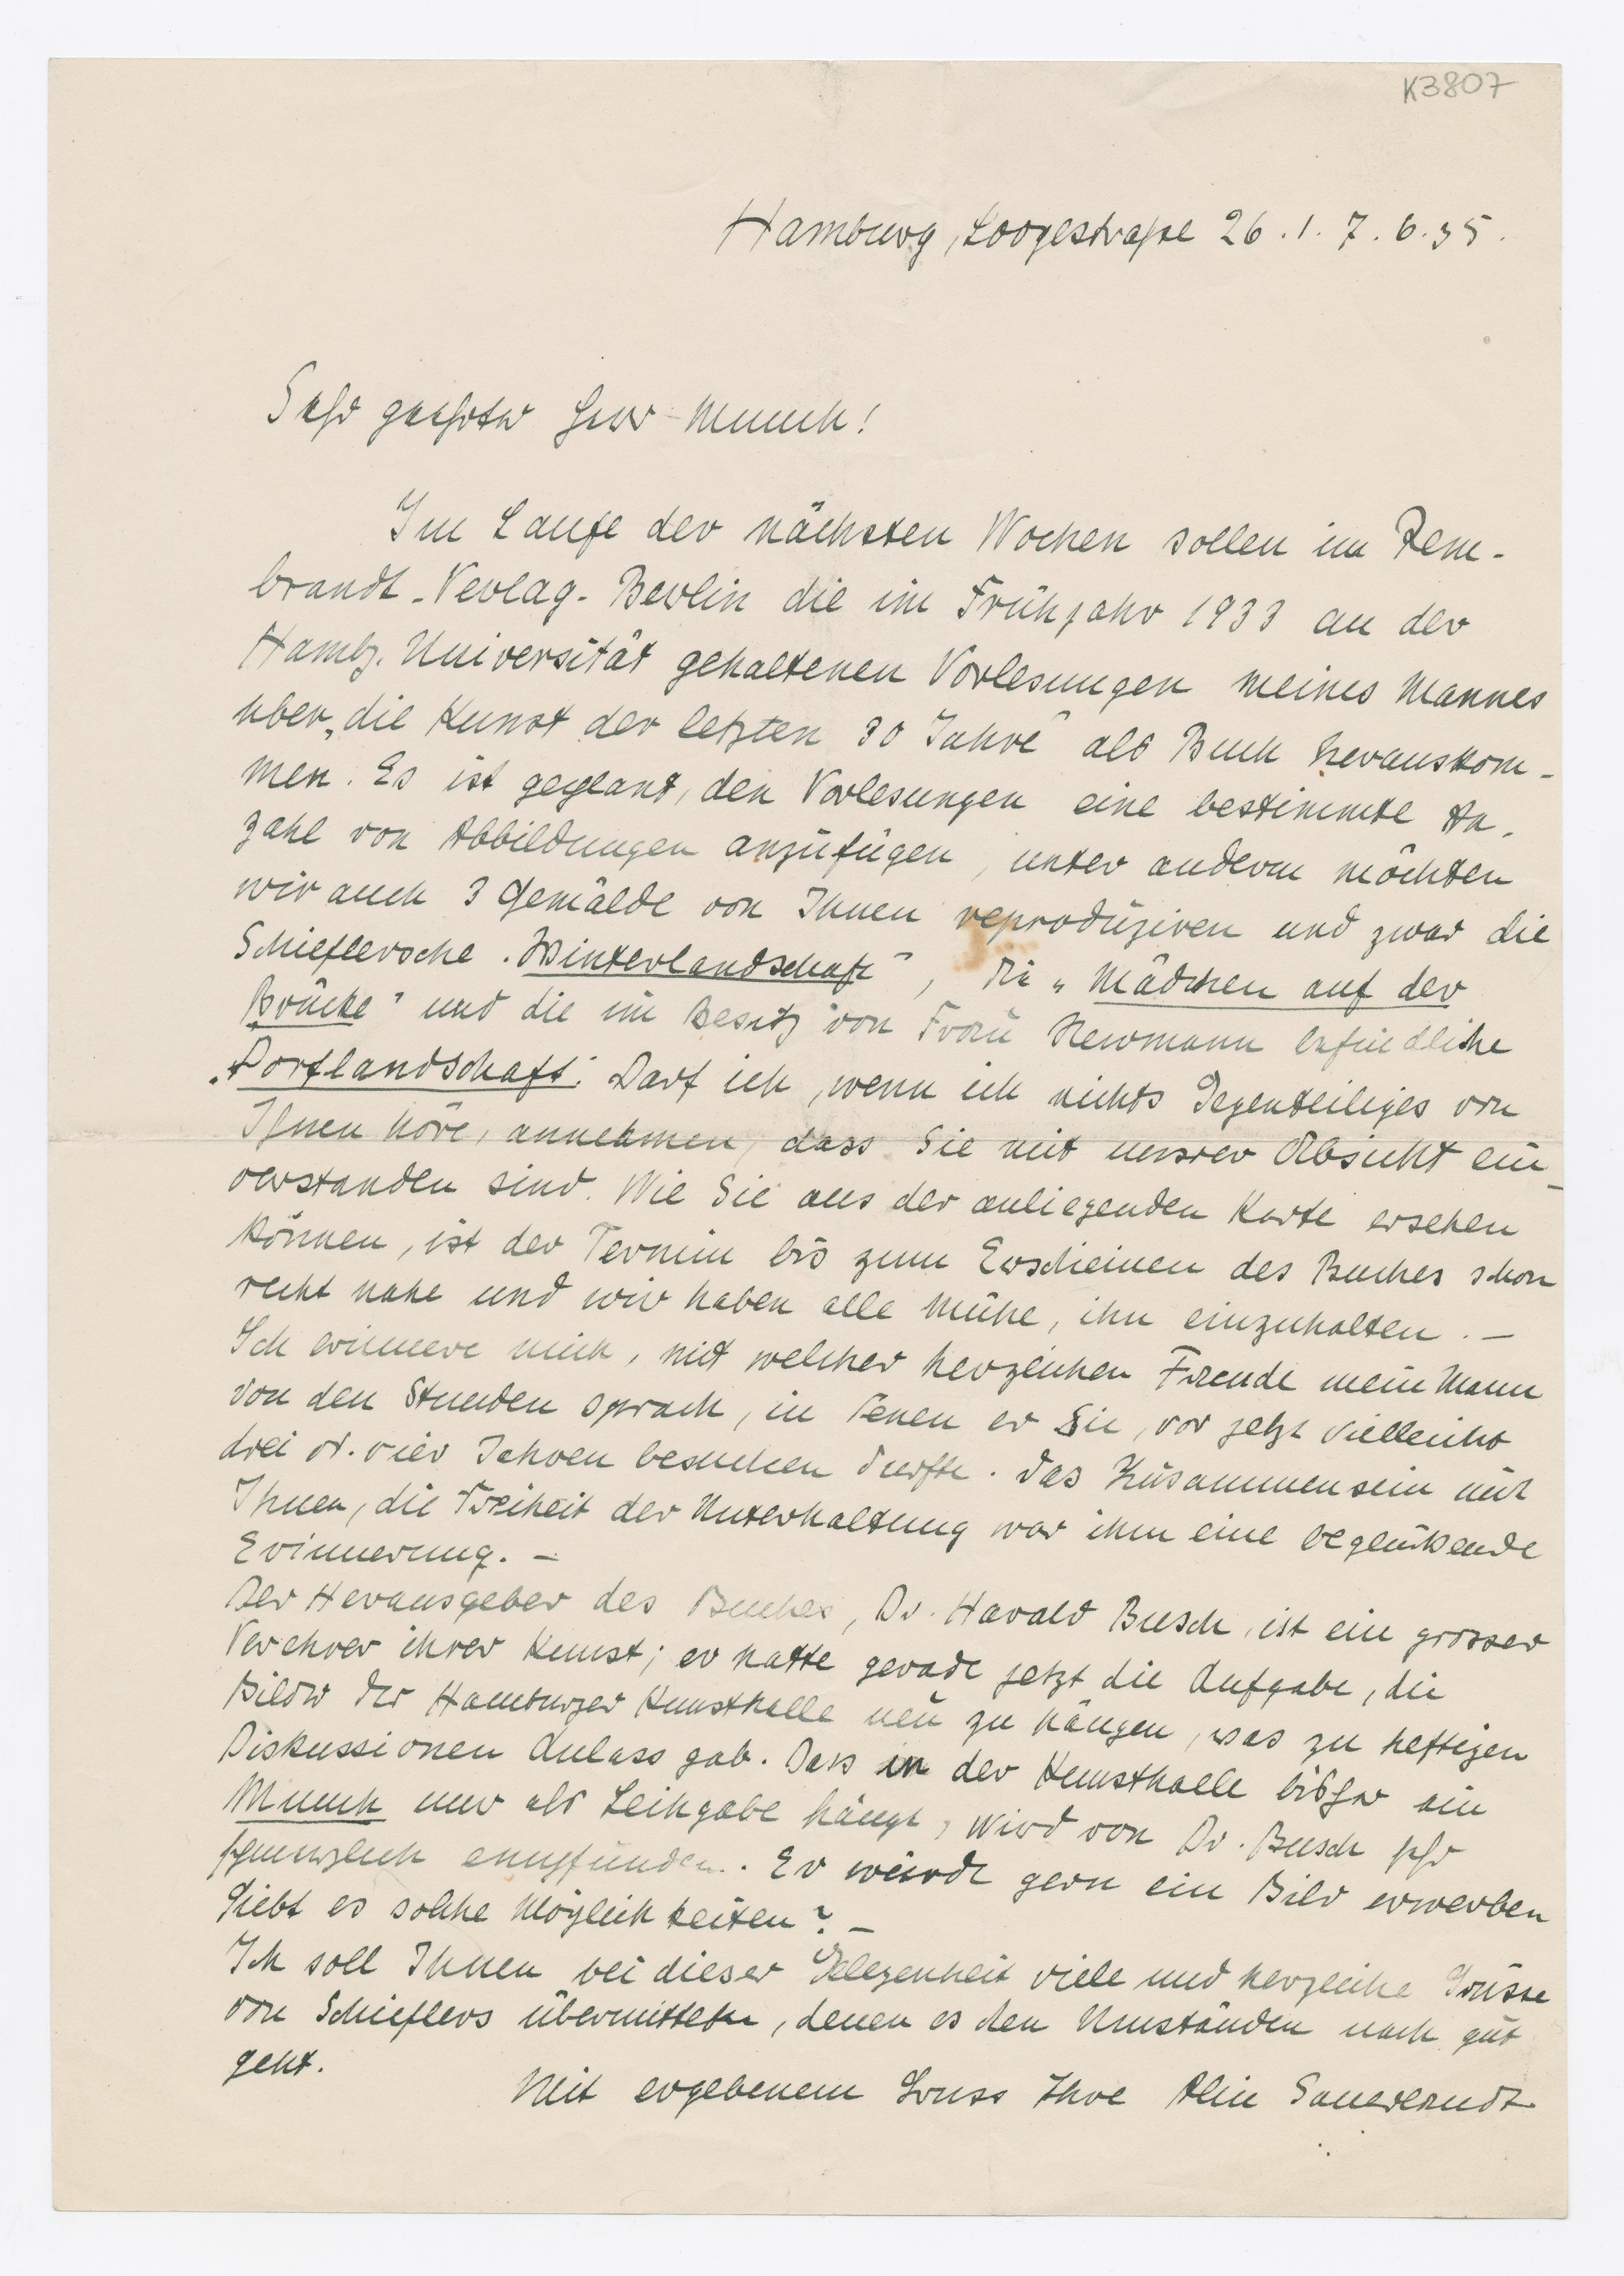 K3807
Hamburg, Loogestraße 26.I. 7.6.35.
Sehr geehrter Herr Munch!
Im Laufe der nächsten Wochen sollen im Rem-
brandt-Verlag-Berlin die im Frühjahr 1933 an der
Hambg. Universität gehaltenen Vorlesungen meines Mannes
über „die Kunst der letzten 30 Jahre" als Buch herauskom-
men. Es ist geplant, den Vorlesungen eine bestimmte An-
zahl von Abbildungen anzufügen, unter anderm möchten
wir auch 3 Gemälde von Ihnen reproduzieren und zwar die
Schieflersche „Winterlandschaft", die „Mädchen auf der
Brücke" und die im Besitz von Frau Newmann befindliche
„Dorflandschaft". Darf ich, wenn ich nichts Gegenteiliges von
Ihnen höre, annehmen, dass Sie mit unsrer Absicht ein-
verstanden sind. Wie Sie aus der anliegenden Karte ersehen
können, ist der Termin bis zum Erscheinen des Buches schon
recht nahe und wir haben alle Mühe, ihn einzuhalten. –
Ich erinnere mich, mit welcher herzlichen Freude mein Mann
von den Stunden sprach, in denen er Sie, vor jetzt vielleicht
drei od. vier Jahren besuchen durfte. Das Zusammensein mit
Ihnen, die Freiheit der Unterhaltung war ihm eine beglückende
Erinnerung. –
Der Herausgeber des Buches, Dr. Harald Busch, ist ein grosser
Verehrer ihrer Kunst; er hatte gerade jetzt die Aufgabe, die
Bilder der Hamburger Kunsthalle neu zu hängen, was zu heftigen
Diskussionen Anlass gab. Dass in der Kunsthalle bisher ein
Munch nur als Leihgabe hängt, wird von Dr. Busch sehr
schmerzlich empfunden. Er würde gern ein Bild erwerben
Giebt es solche Möglichkeiten? –
Ich soll Ihnen bei dieser Gelegenheit viele und herzliche Grüsse
von Schieflers übermitteln, denen es den Umständen nach gut
geht.
Mit ergebenem Gruss Ihre Alice Sauerlandt